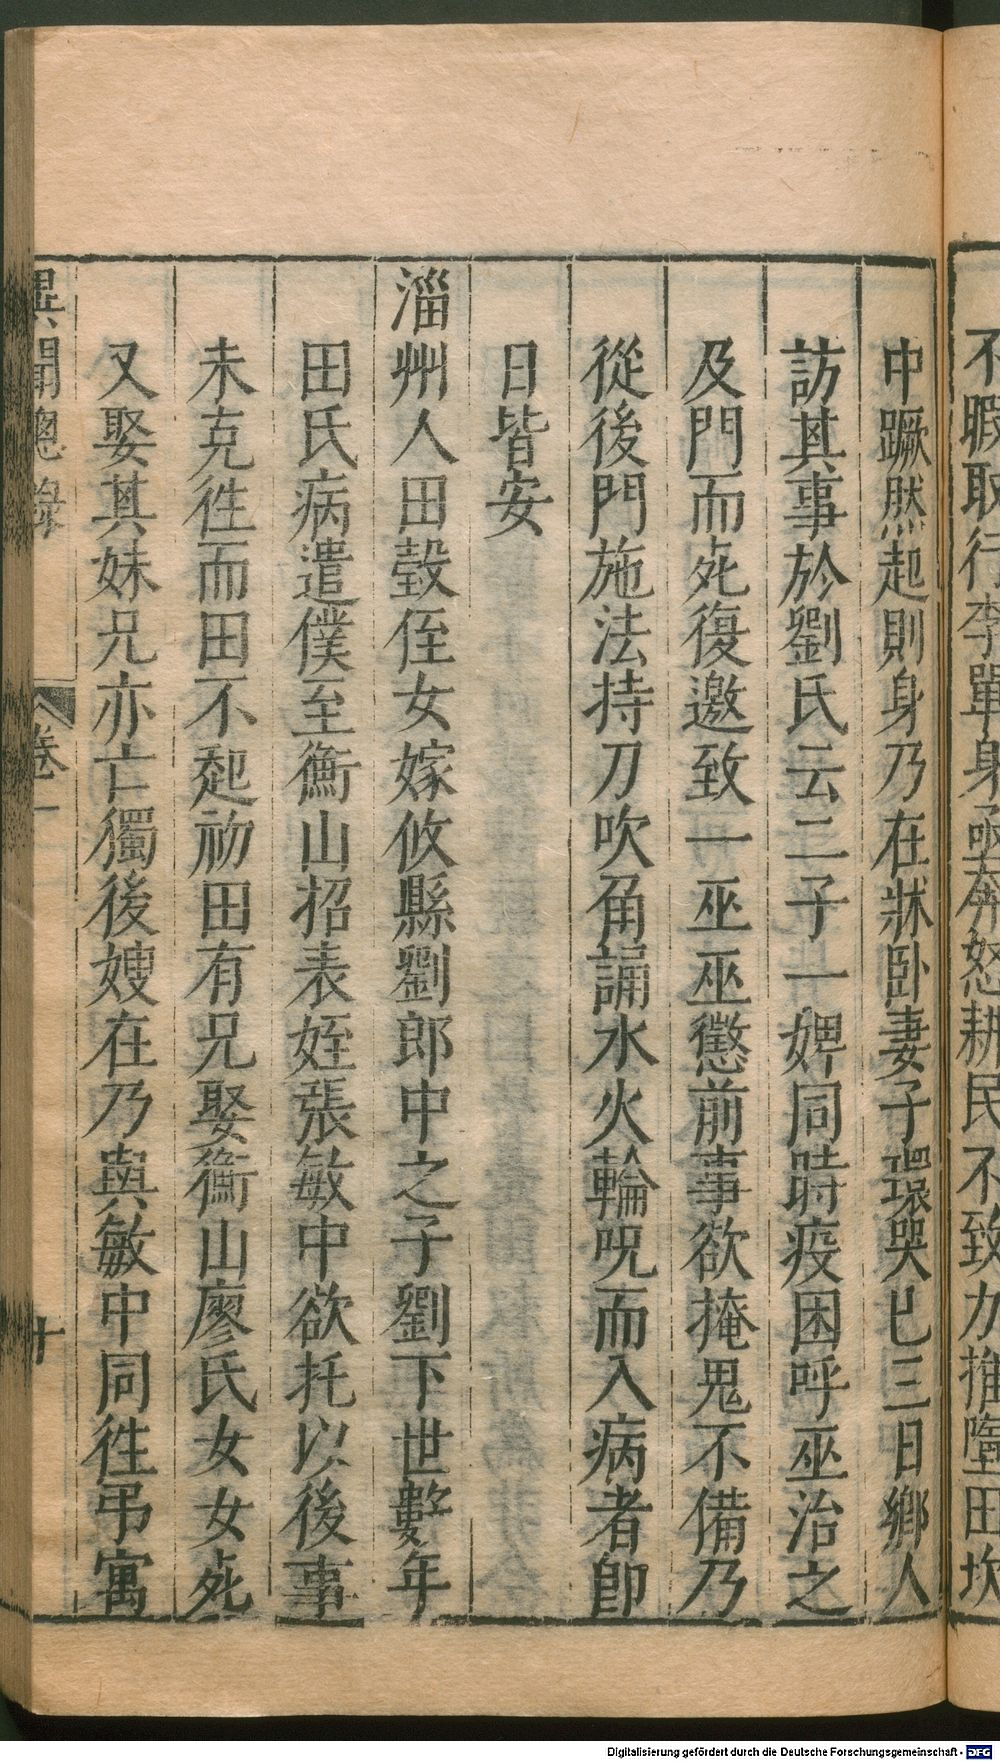 不暇取行李單身亟奔怒耕民不致力推墮田坎
中蹶然起則身乃在牀卧妻子環哭巳三日鄉人
訪其事於劉氏云二子一婢同時疫困呼巫治之
及門而死復邀致一巫巫懲前事欲掩鬼不備乃
從後門施法持刀吹角誦水火輪呪而入病者即
日皆安
淄州人田瑴侄女嫁攸縣劉郎中之子劉下世數年
田氏病遣僕至衡山招表姪張敏中欲托以後事
未克徃而田不起初田有兄娶衡山廖氏女女死
又娶其妹兄亦亡獨後嫂在乃與敏中同徃弔寓
異聞總錄 卷一 十
Digitalisierung gefördert durch die Deutsche Forschungsgemeinschaft - DFG